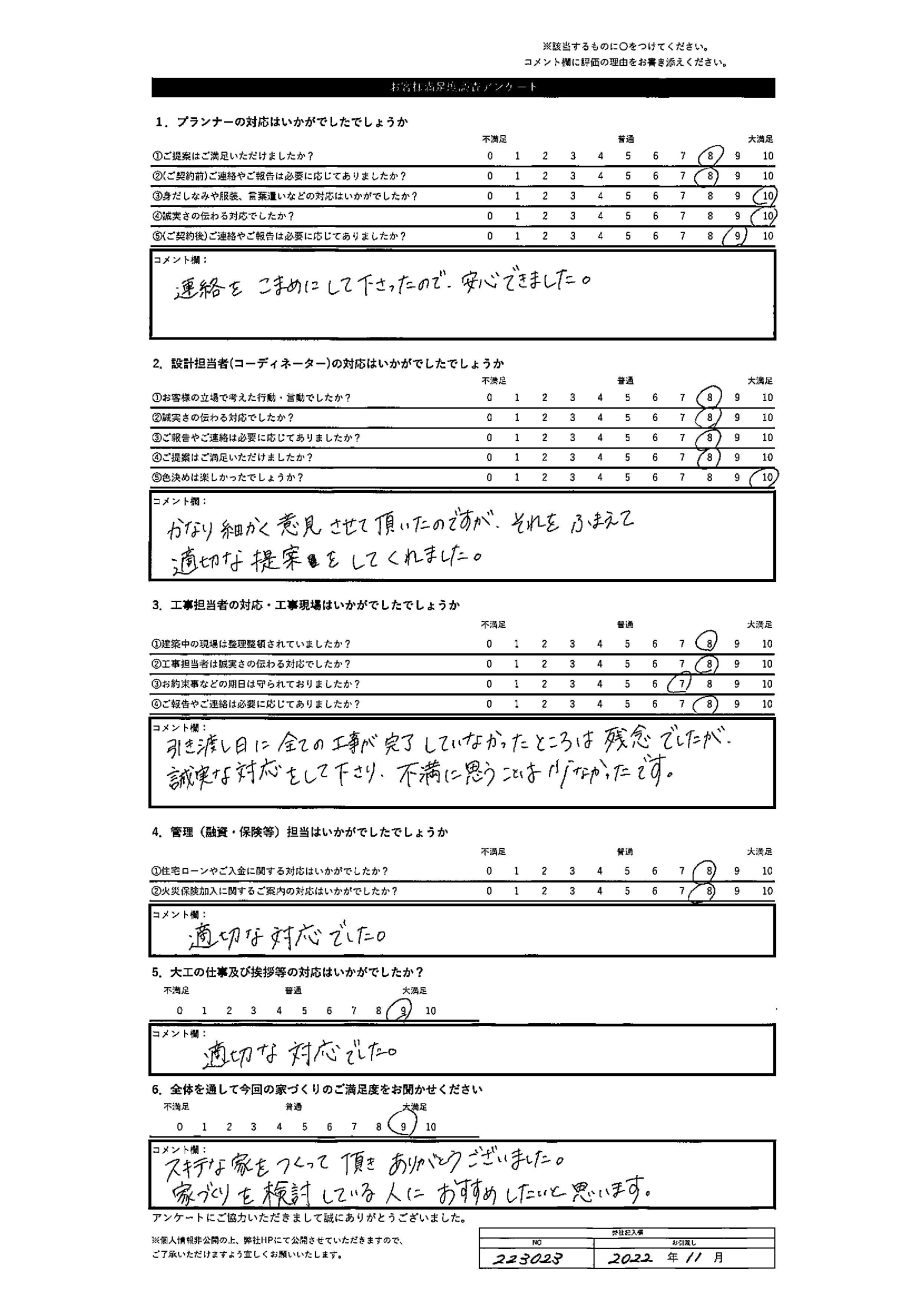 ※該当するものに〇をつけてください。
コメント欄に評価の理由をお書き添えください。
お客様満足度調査アンケート
1．プランナーの対応はいかがでしたでしょうか
不満足 普通 大満足
①ご提案はご満足いただけましたか？ 0 1 2 3 4 5 6 7 8 9 10
②(ご契約前)ご連絡やご報告は必要に応じてありましたか？ 0 1 2 3 4 5 6 7 8 9 10
③身だしなみや服装、言葉遣いなどの対応はいかがでしたか？ 0 1 2 3 4 5 6 7 8 9 10
④誠実さの伝わる対応でしたか？ 0 1 2 3 4 5 6 7 8 9 10
⑤(ご契約後)ご連絡やご報告は必要に応じてありましたか？ 0 1 2 3 4 5 6 7 8 9 10
コメント欄：
連絡を こまめにして下さったので、安心できました。
2．設計担当者(コーディネーター)の対応はいかがでしたでしょうか
不満足 普通 大満足
①お客様の立場で考えた行動・言動でしたか？ 0 1 2 3 4 5 6 7 8 9 10
②誠実さの伝わる対応でしたか？ 0 1 2 3 4 5 6 7 8 9 10
③ご報告やご連絡は必要に応じてありましたか？ 0 1 2 3 4 5 6 7 8 9 10
④ご提案はご満足いただけましたか？ 0 1 2 3 4 5 6 7 8 9 10
⑤色決めは楽しかったでしょうか？ 0 1 2 3 4 5 6 7 8 9 10
コメント欄：
かなり細かく意見させて頂いたのですが、それを ふまえて
適切な提案をしてくれました。
3．工事担当者の対応・工事現場はいかがでしたでしょうか
不満足 普通 大満足
①建築中の現場は整理整頓されていましたか？ 0 1 2 3 4 5 6 7 8 9 10
②工事担当者は誠実さの伝わる対応でしたか？ 0 1 2 3 4 5 6 7 8 9 10
③お約束事などの期日は守られておりましたか？ 0 1 2 3 4 5 6 7 8 9 10
④ご報告やご連絡は必要に応じてありましたか？ 0 1 2 3 4 5 6 7 8 9 10
コメント欄：
引き渡し日に全ての工事が完了していなかったところは残念でしたが、
誠実な対応をして下さり、不満に思うことは少なかったです。
4．管理（融資・保険等）担当はいかがでしたでしょうか
不満足 普通 大満足
①住宅ローンやご入金に関する対応はいかがでしたか？ 0 1 2 3 4 5 6 7 8 9 10
②火災保険加入に関するご案内の対応はいかがでしたか？ 0 1 2 3 4 5 6 7 8 9 10
コメント欄：
適切な対応でした。
5．大工の仕事及び挨拶等の対応はいかがでしたか？
不満足 普通 大満足
0 1 2 3 4 5 6 7 8 9 10
コメント欄：
適切な対応でした。
6．全体を通して今回の家づくりのご満足度をお聞かせください
不満足 普通 大満足
0 1 2 3 4 5 6 7 8 9 10
コメント欄：
ステキな家をつくって頂き ありがとうございました。
家づくりを検討している人に おすすめしたいと思います。
アンケートにご協力いただきまして誠にありがとうございました。
※個人情報非公開の上、弊社HPにて公開させていただきますので、
ご了承いただけますよう宜しくお願いいたします。
弊社記入欄
NO お引渡し
223023 2022 年 11 月